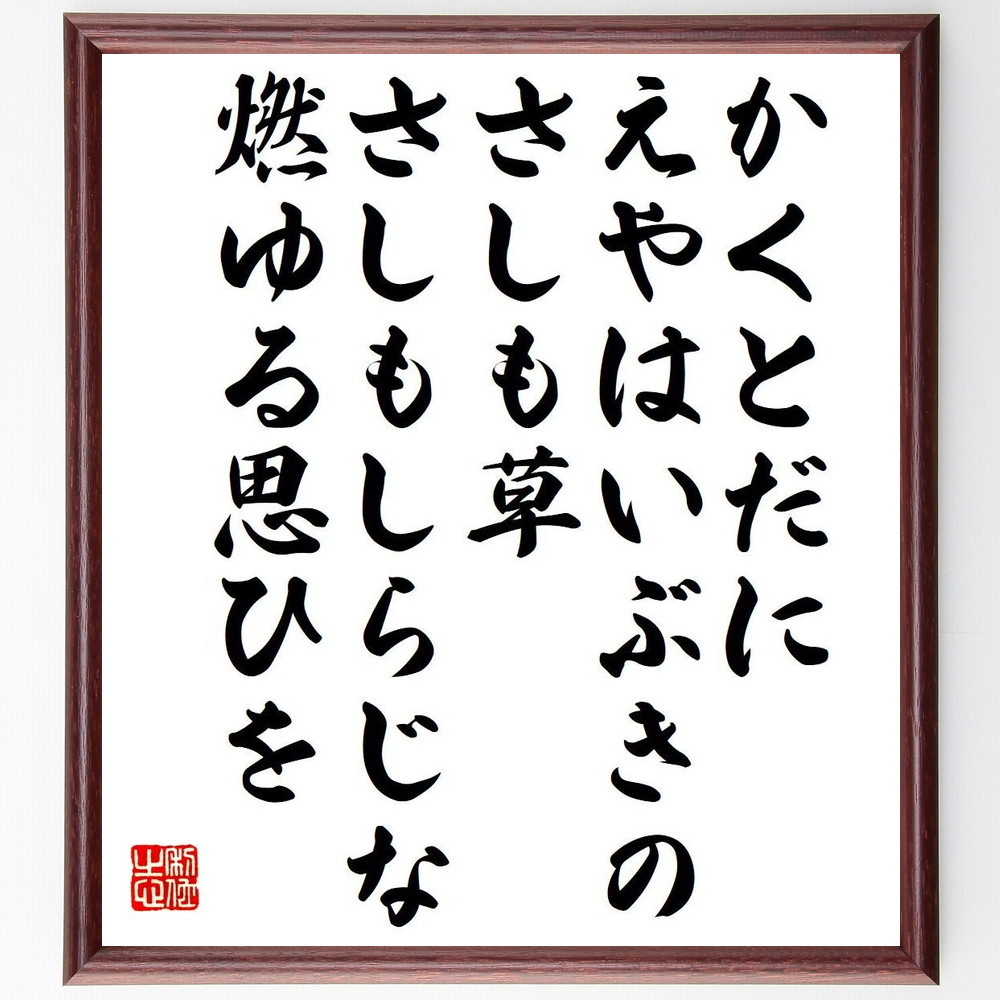 かくとだに
えやはいぶきの
さしも草
さしもしらじな
燃ゆる思ひを